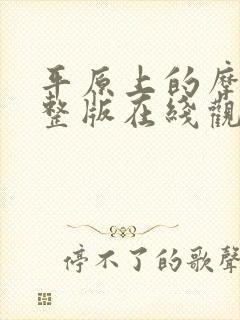 平原上的摩
整版在綫觀
停不了的歌聲